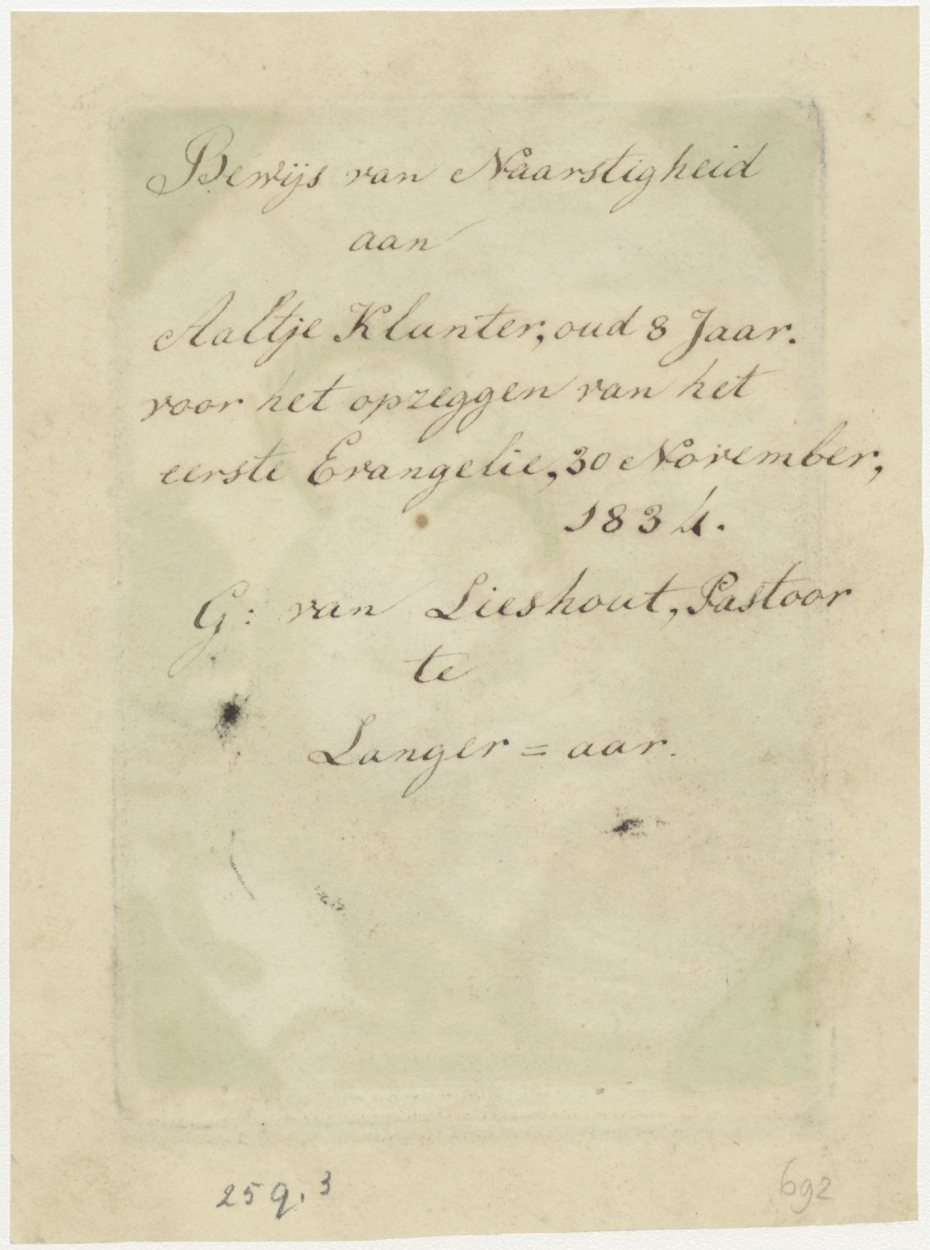 Bewijs van Naarstigheid
aan
Aaltje Klunter, oud 8 Jaar.
voor het opzeggen van het
eerste Evangelie, 30 November,
1834.
G: van Lieshout, Pastoor
te
Langer = aar.
25 q. 3
692